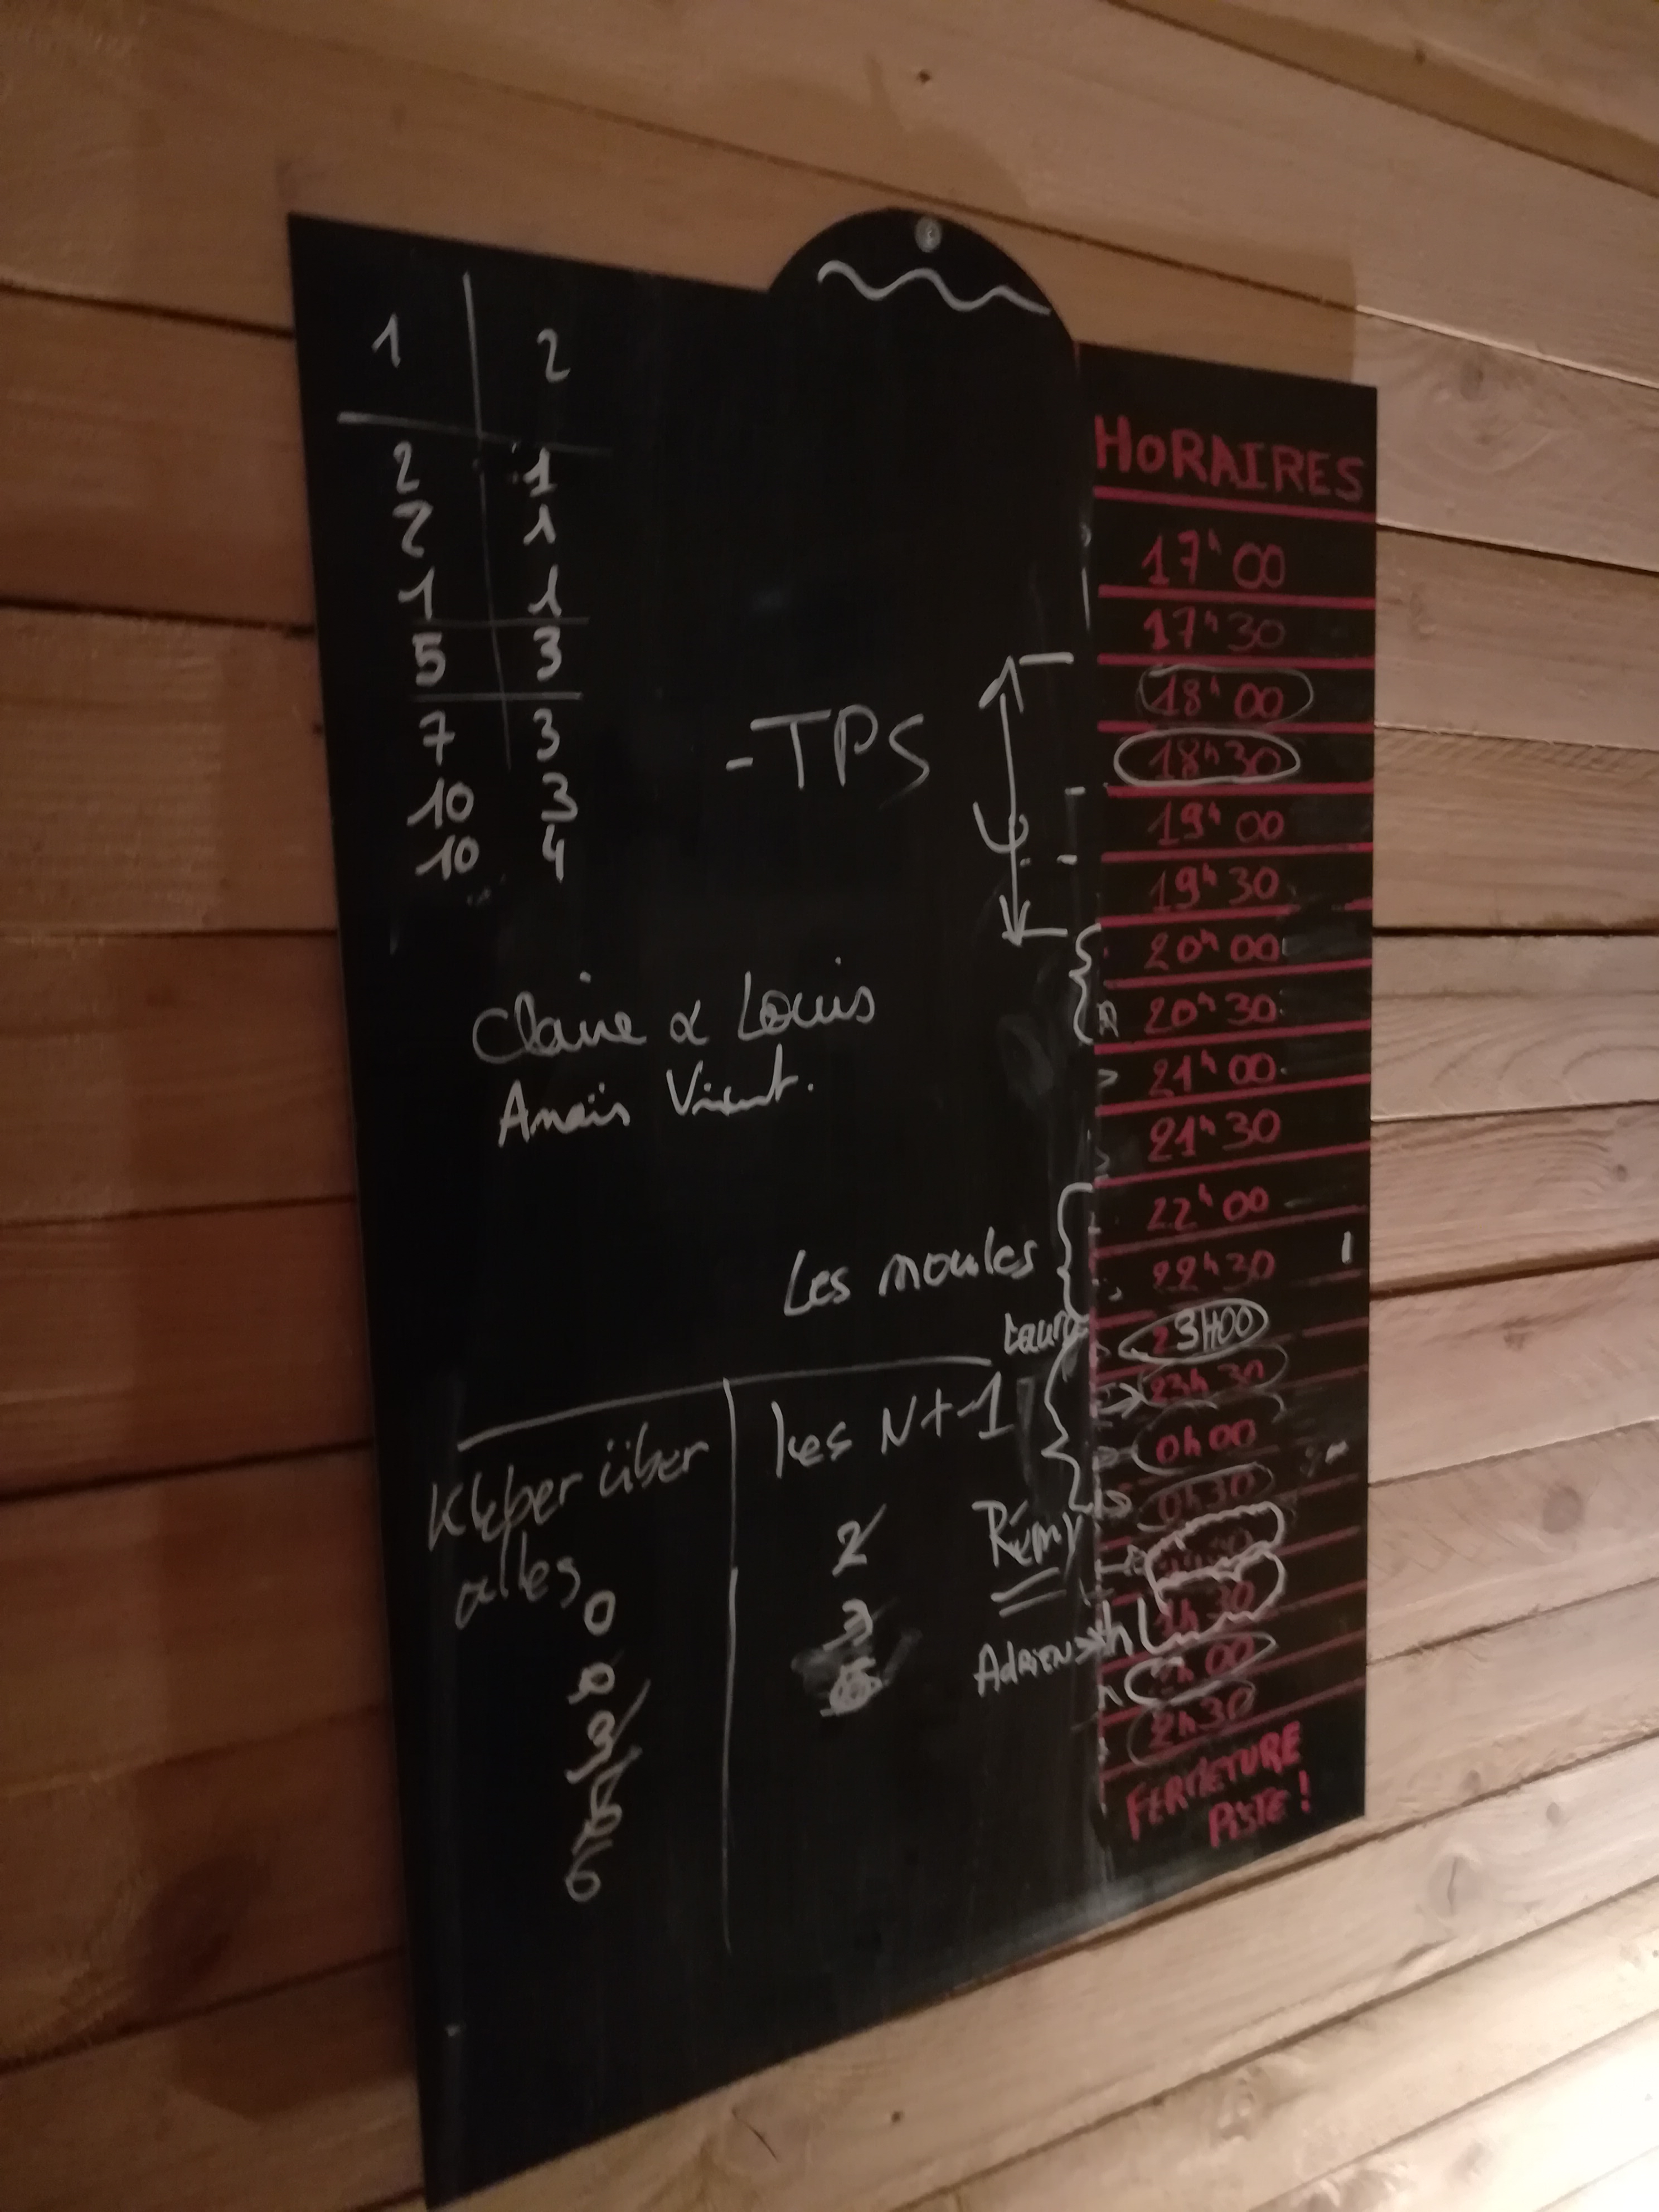 1 2
2 1
2 1
1 1
5 3
7 3
10 3
10 4
-TPS
Claire & Louis
Anaïs
Les moules
Laura
Kleber über
alles
0
6
les N+1
2
3
Rémy
ADRIEN
HORAIRES
17h00
17h30
18h00
18h30
19h00
19h30
20h00
20h30
21h00
21h30
22h00
22h30
23H00
23h30
0h00
0h30
1h30
2h00
2h30
FERMETURE
PISTE !